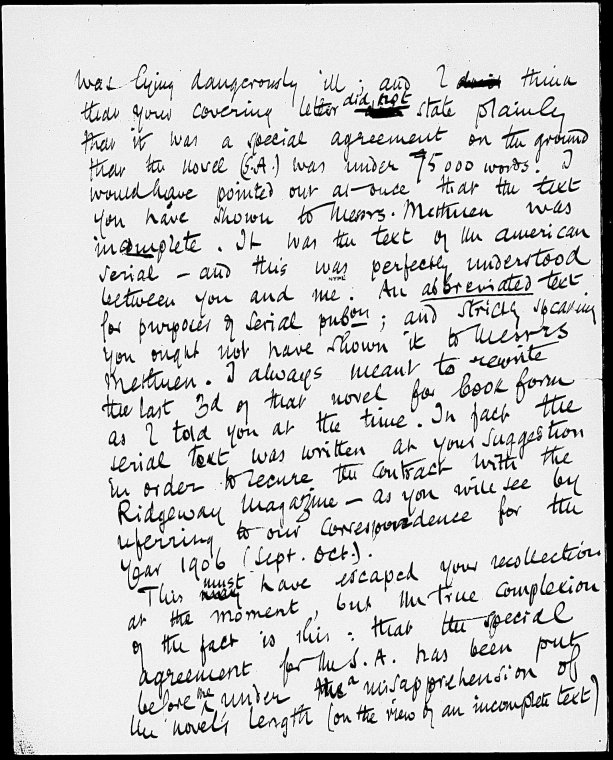 was lying dangerously ill; and I think
that your covering letter did not state plainly
that it was a special agreement on the ground
that the novel (S.A.) was under 75000 words. I
would have pointed out at once that the text
you have shown to Messrs. Methuen was
incomplete. It was the text of the american
serial — and this was perfectly understood
between you and me. An abbreviated text
for purposes of serial pubon; and strictly speaking
you ought not have shown it to Messrs
Methuen. I always meant to rewrite
the last 3d of that novel for book form
as I told you at the time. In fact the
serial text was written at your suggestion
in order to secure the contract with the
Ridgeway Magazine — as you will see by
referring to our correspondence for the
Year 1906 (Sept. Oct.).
This must have escaped your recollection
at the moment, but the true complexion
of the fact is this: that the special
agreement for the S.A. has been put
before me under a misapprehension of
the novel's length (on the view of an incomplete text)